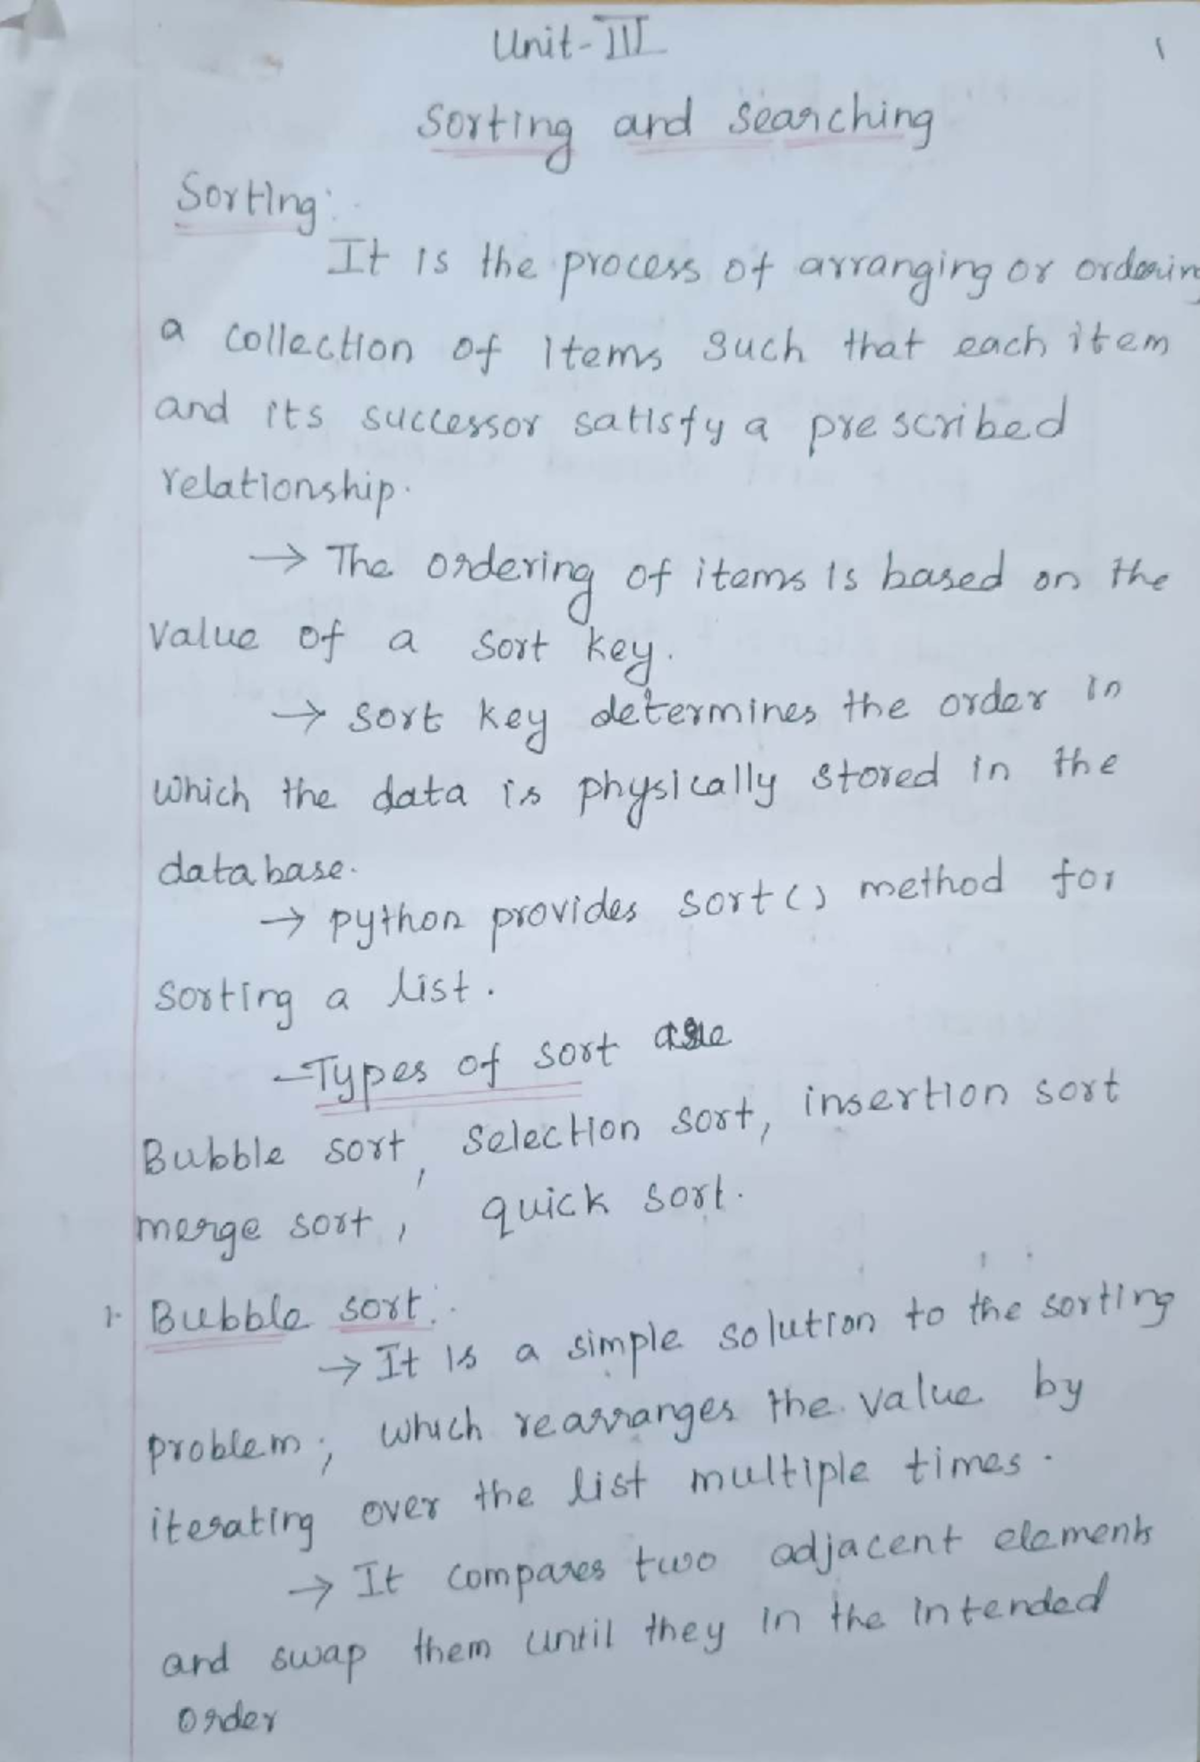 Unit-III
1
Sorting and searching
Sorting:
It is the process of arranging or ordering
a collection of items such that each item
and its successor satisfy a prescribed
relationship.
→ The ordering of items is based on the
value of a sort key.
→ sort key determines the order in
which the data is physically stored in the
database.
→ python provides sort() method for
sorting a list.
-Types of sort are
Bubble sort, selection sort, insertion sort
merge sort, quick sort.
1. Bubble sort:
→ It is a simple solution to the sorting
problem, which rearranges the value by
iterating over the list multiple times.
→ It compares two adjacent elements
and swap them until they in the intended
order